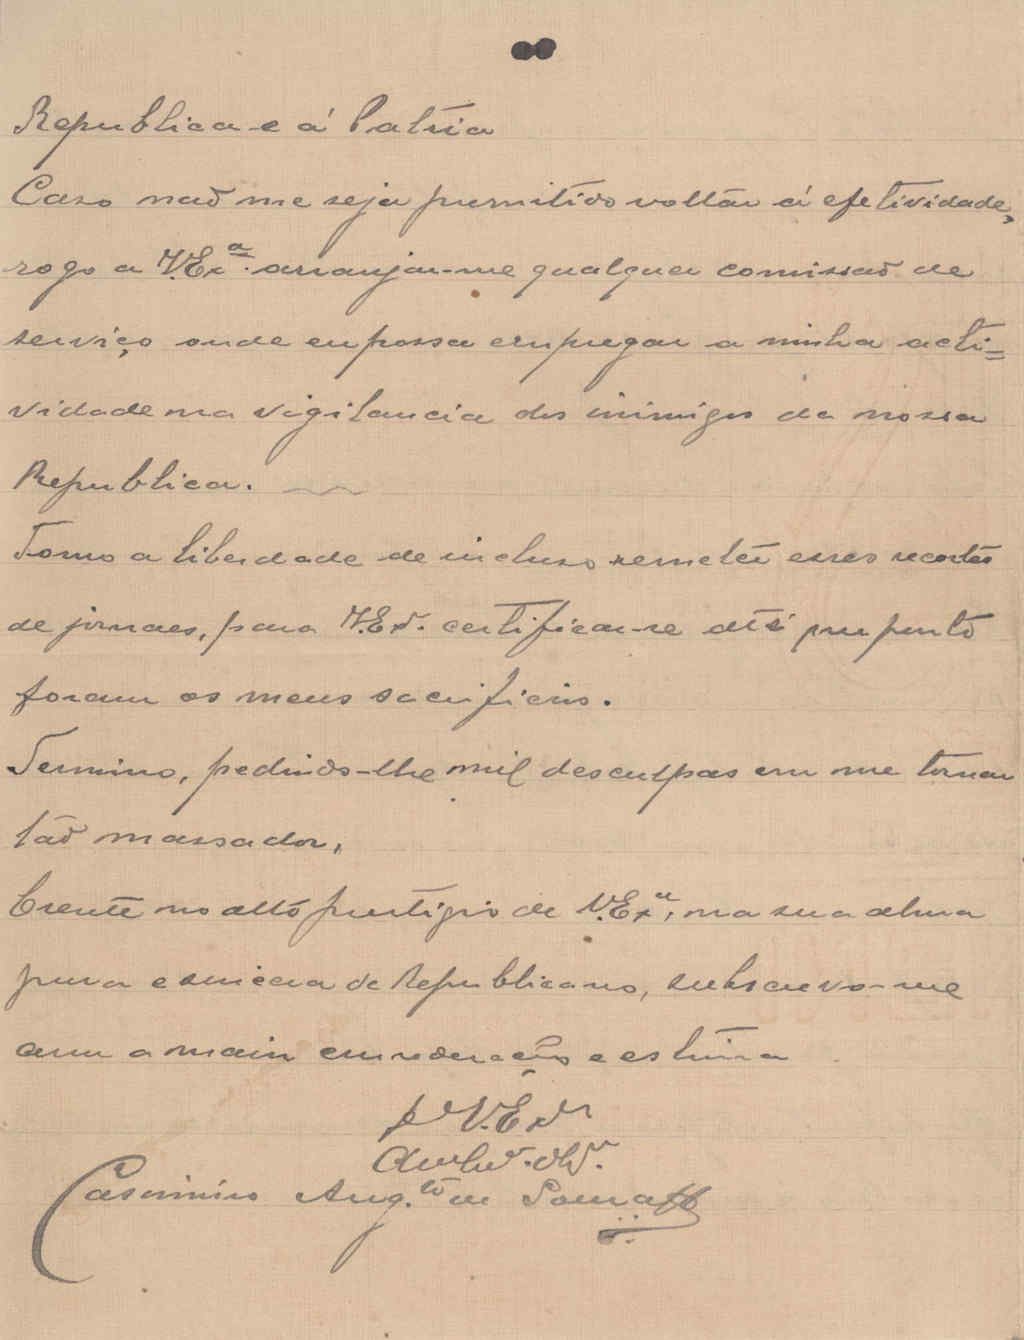 Republica e á Patria
Caso naõ me seja permitido voltar á efetividade,
rogo a V.Exª. arranjar-me qualquer comissaõ de
serviço onde eu possa empregar a minha acti=
vidade na vigilancia dos inimigos da nossa
Republica.
Tomo a liberdade de incluso remeter esses recortes
de jornaes, para V.Exª. certificar-se até que ponto
foram os meus sacrificios.
Termino, pedindo-lhe mil desculpas em me tornar
tão massador,
Crente no alto prestigio de V.Exª, na sua alma
pura e sincera de Republicano, subscrevo-me
com a maior consideração e estima
De V.Exª
Casimiro Aug.to de Sousa